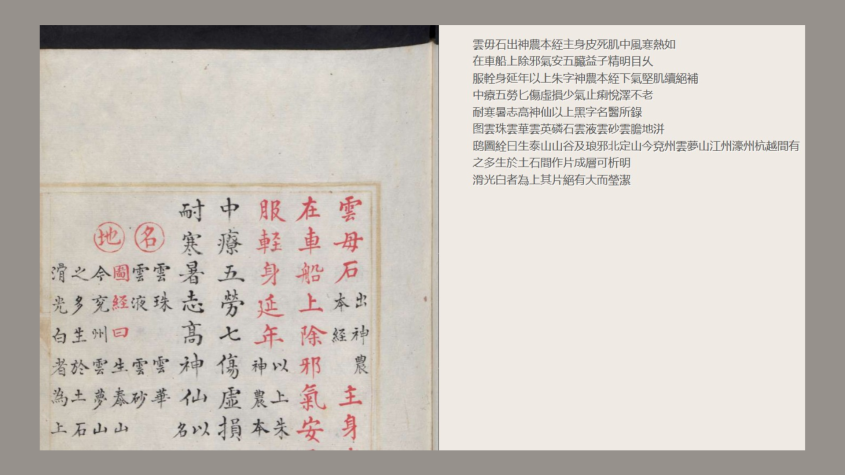 雲母石出神農本經主身
在車船上除邪氣安
服輕身延年以上朱神農本
中療五勞七傷虛損
耐寒暑志高神仙以名
名
雲珠 雲華
雲液 雲砂
地
圖經曰 生泰山
今兗州雲夢山
之多生於土石
滑光白者為上
雲毋石出神農本經主身皮死肌中風寒熱如
在車船上除邪氣安五臟益子精明目乆
服輇身延年以上朱字神農本經下氣堅肌續絕補
中療五勞匕傷虛損少氣止痢悅澤不老
耐寒暑志高神仙以上黑字名醫所錄
图雲珠雲華雲英磷石雲液雲砂雲膽地洴
圖銓曰生泰山山谷及琅邪北定山今兗州雲夢山江州濠州杭越間有
之多生於土石間作片成層可析明
滑光白者為上其片絕有大而瑩潔